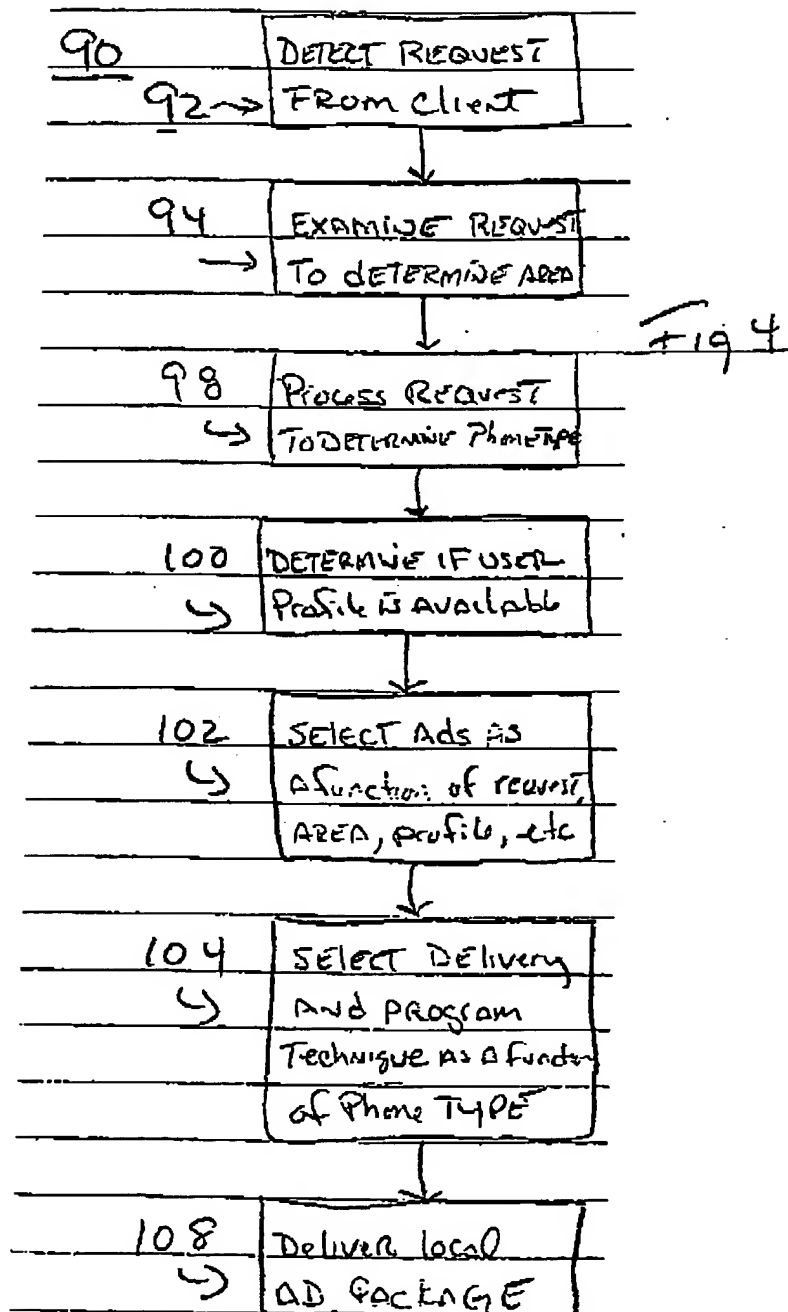 90
DETECT REQUEST
92 → FROM Client
94
EXAMINE REQUEST
→ TO dETERMINE AREA
Fig 4
98
Process REQUEST
TO DETERMINE Phone TYPE
100
DETERMINE IF USER
Profile is AVAilAble
102
SElECT Ads As
A function of request,
AREA, profile, etc
104
SElECT DElivery
And PROgram
Technique As A function
of Phone TYPE
108
Deliver local
AD PACKAGE